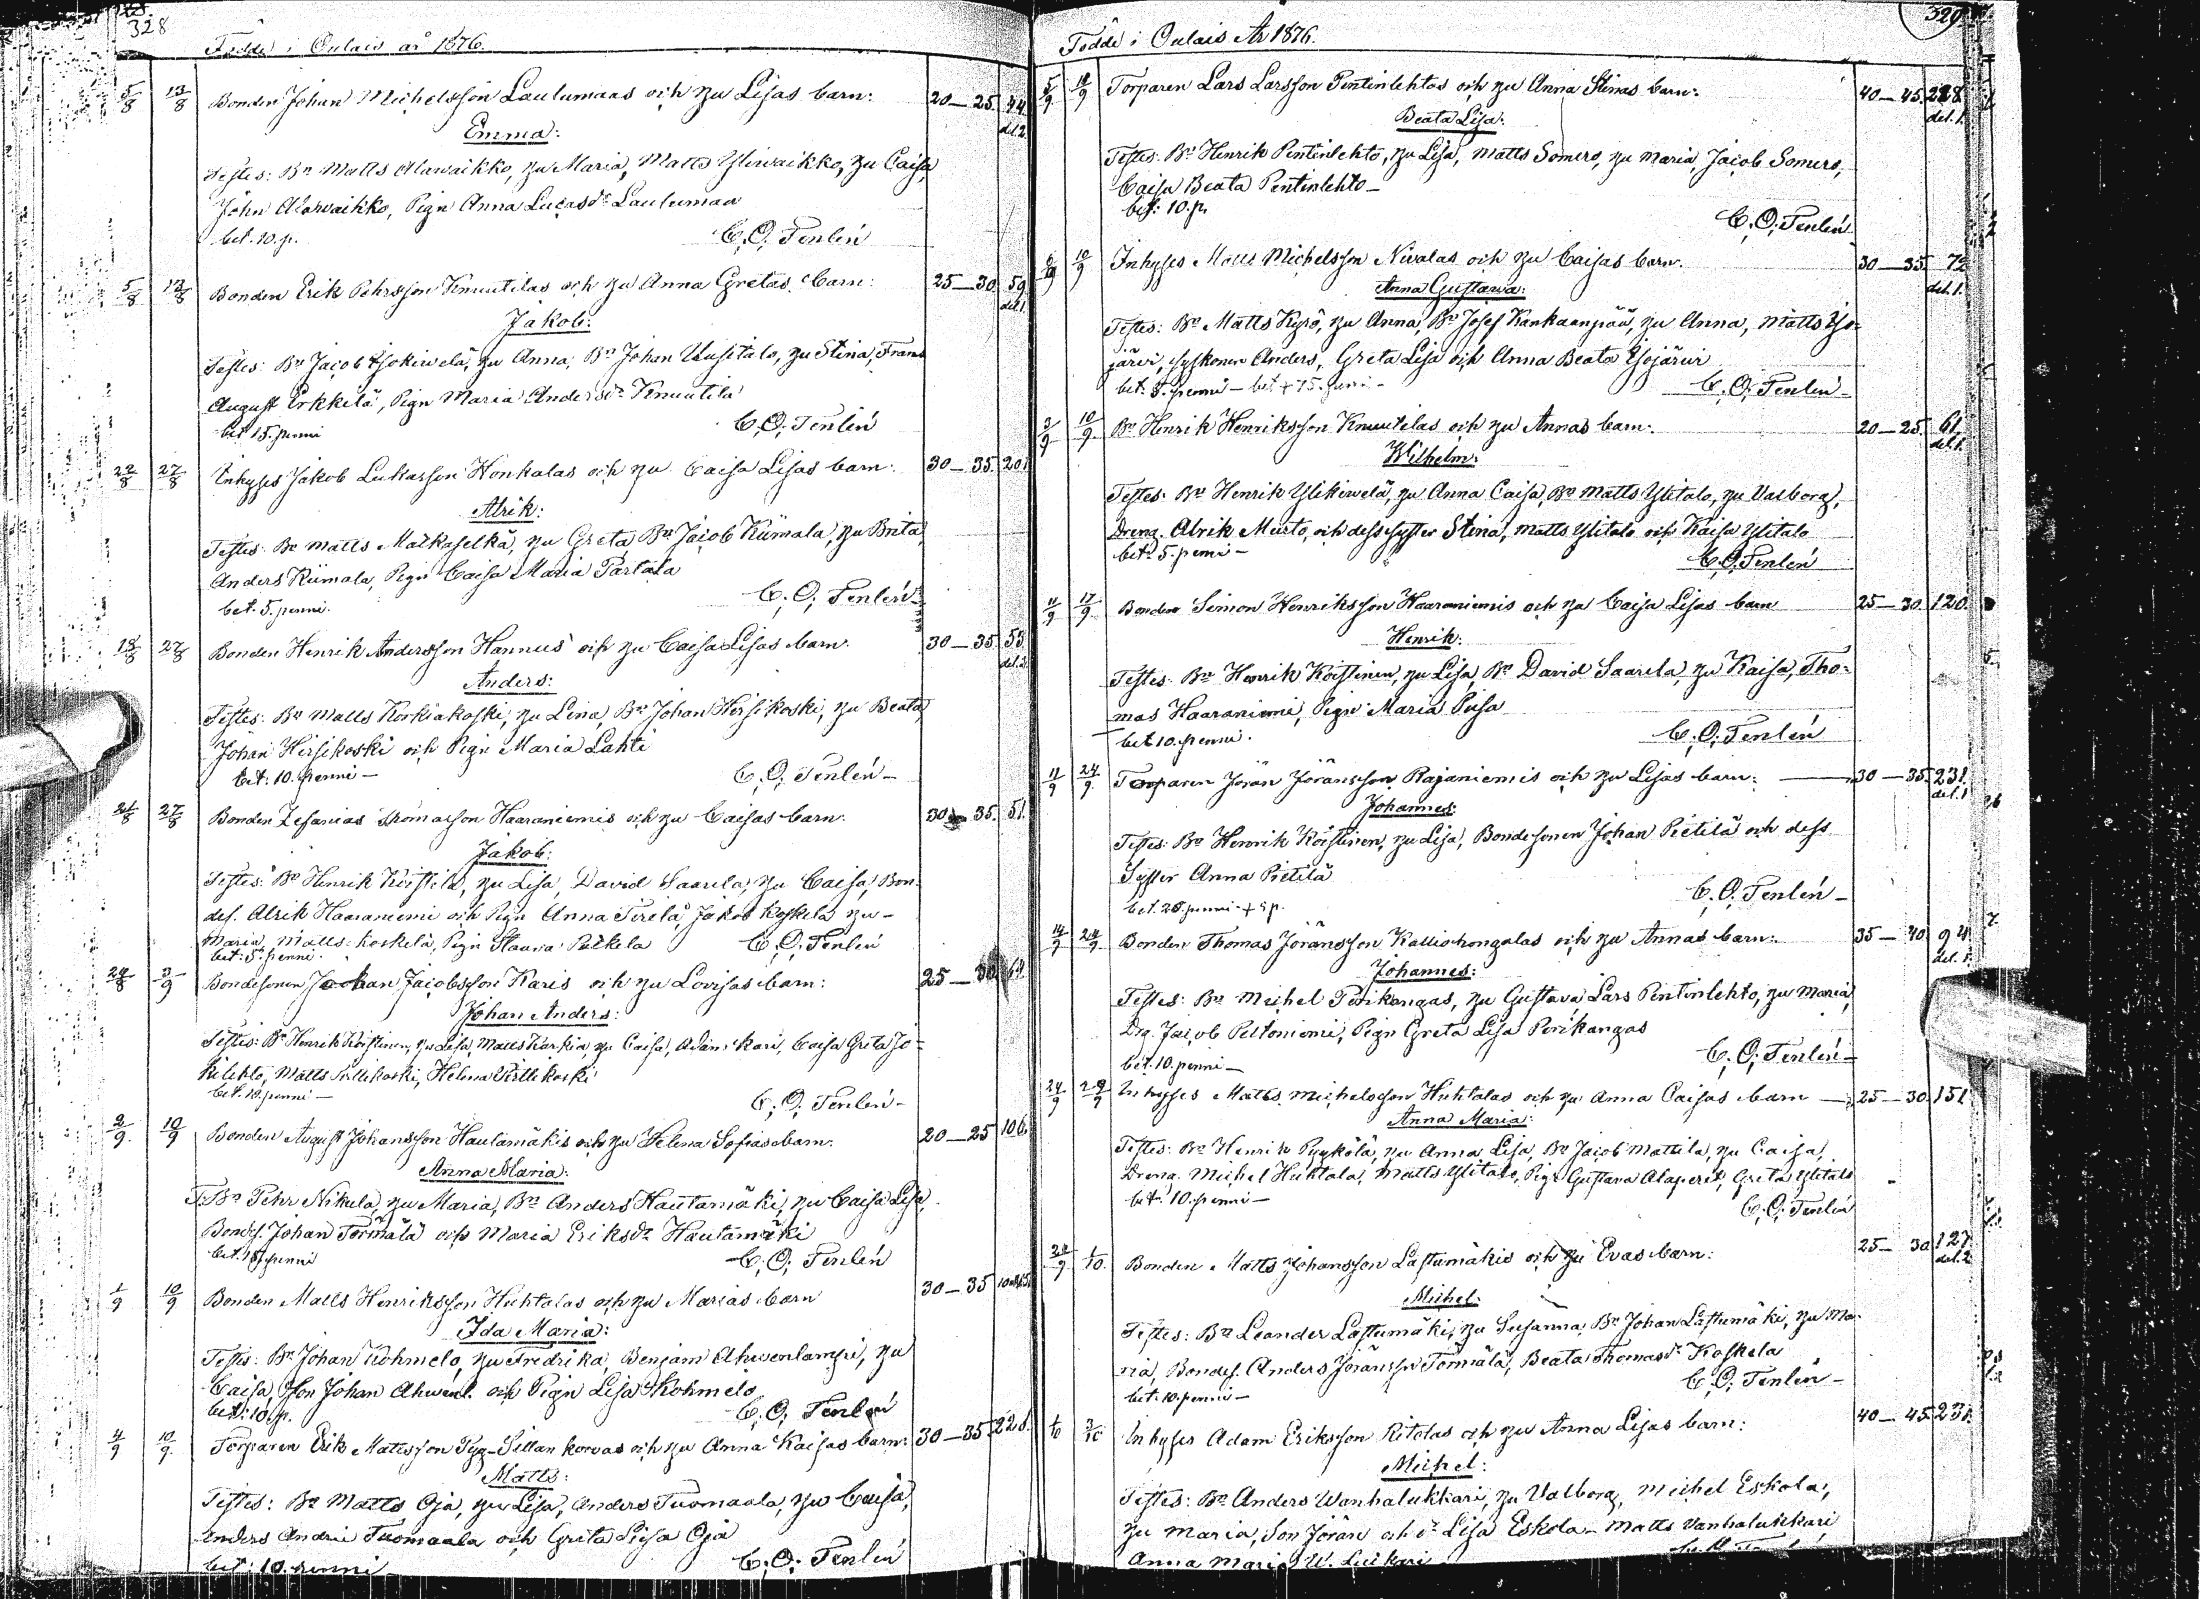 328
Födde i Oulais år 1876.
5/8 13/8 Bonden Johan Michelsson Laulumaas och hu Lisas barn: 20—25 44 del.2
Emma:
Testes: Bn Matts Alavaikko, hu Maria, Matts Ylivaikko, hu Caisa,
John Alavaikko, Pign Anna Lucasdr Laulumaa
bet. 10. p. C. O. Tenlén
5/8 13/8 Bonden Erik Pehrsson Knuutilas och hu Anna Gretas barn: 25—30 59 del.1
Jakob:
Testes: Bn Jacob Isokiwelä, hu Anna, Bn Johan Uusitalo, hu Stina, Frans
August Erkkilä, Pign Maria Andersdr Knuutila
bet 15. penni C. O. Tenlén
22/8 27/8 Inhyses Jakob Lukasson Honkalas och hu Caisa Lisas barn: 30—35 201
Alrik:
Testes: Bn Matts Matkaselkä, hu Greta Bn Jacob Kiimala, hu Brita,
Anders Kiimala, Pign Caisa Maria Partala
bet. 5. penni. C. O. Tenlén
18/8 27/8 Bonden Henrik Andersson Hannus och hu Caisa Lisas barn. 30—35 55 del.2
Anders:
Testes: Bn Matts Korkiakoski, hu Lena, Bn Johan Hirsikoski, hu Beata,
Johan Hirsikoski och Pign Maria Lahti
bet: 10. penni — C. O. Tenlén —
21/8 27/8 Bonden Zefanias Thomasson Haaraniemis och hu Caisas barn. 30—35. 51.
Jakob:
Testes: Bn Henrik Köistilä, hu Lisa, David Saarela, hu Caisa, Bon-
des. Alrik Haaraniemi och Pign Anna Tirilä, Jakob Koskela hu —
Maria, Matts Koskela, Pign Haura Patkela C. O. Tenlén
bet: 5. penni.
24/8 3/9 Bondesonen Johan Jacobsson Karis och hu Lovisas barn: 25—30 64
Johan Anders:
Testes: Bn Henrik Köistinen, hu Lisa, Matts Karkia, hu Caisa, Adam Kari, Caisa Greta Jo-
kilehto, Matts Pillikoski, Helena Pillikoski
bet. 10. penni — C. O. Tenlén —
2/9. 10/9 Bonden August Johansson Hautamäkis och hu Helena Sofias barn. 20—25 106
Anna Maria:
T. Bn Pehr Nikula, hu Maria, Bn Anders Hautamäki, hu Caisa Lisa,
Bondes. Johan Törmälä och Maria Eriksdr Hautamäki
bet. 15 penni C. O. Tenlén
1/9 10/9 Bonden Matts Henriksson Huhtalas och hu Marias barn 30—35
Ida Maria:
Testes: Bn Johan Kohmelo, hu Fredrika, Benjam Ahvenlampi, hu
Caisa, Son Johan Ahvenl. och Pign Lisa Kohmelo
bet: 10 p. C. O. Tenlén
4/9 10/9. Torparen Erik Matsson Pyg-Sillankorvas och hu Anna Kaisas barn: 30—35. 228.
Matts:
Testes: Bn Matts Oja, hu Lisa, Anders Tuomaala, hu Caisa,
Anders Andrie Tuomaala och Greta Lisa Oja
bet: 10. penni C. O. Tenlén
329
Födde i Oulais År 1876.
5/9 10/9 Torparen Lars Larsson Pentinlehtos och hu Anna Stinas barn: 40—45. 218 del.1
Beata Lisa:
Testes: Bn Henrik Pentinlehto, hu Lisa, Matts Somero, hu Maria, Jacob Somero,
Caisa Beata Pentinlehto —
bet: 10. p. C. O. Tenlén
6/9 10/9 Inhyses Matts Michelsson Nivalas och hu Caisas barn. 30—35 72 del.1.
Anna Gustava:
Testes: Bn Matts Kyrö, hu Anna, Bn Josef Kankaanpää, hu Anna, Matts Iso-
järvi, syskonen Anders, Greta Lisa och Anna Beata Isojärvi
bet: 5. penni — bet + 15. penni — C. O. Tenlén —
3/9 10/9 Bn Henrik Henriksson Knuutilas och hu Annas barn. 20—25. 61. del.1.
Wilhelm:
Testes: Bn Henrik Ylikiwelä, hu Anna Caisa, Bn Matts Ylitalo, hu Valborg,
Dreng. Alrik Murto, och dess syster Stina, Matts Ylitalo och Kaisa Ylitalo
bet: 5. penni — C. O. Tenlén
11/9 17/9 Bonden Simon Henriksson Haaraniemis och hu Caisa Lisas barn 25—30. 120.
Henrik:
Testes: Bn Henrik Köistinen, hu Lisa, Bn David Saarela, hu Kaisa, Tho-
mas Haaraniemi, Pign Maria Pusa
bet 10. penni. C. O. Tenlén
11/9 24/9. Torparen Jöran Jöransson Rajaniemis och hu Lisas barn: 30—35. 231. del.1
Johannes:
Testes: Bn Henrik Köistinen, hu Lisa, Bondesonen Johan Pietilä och dess
Syster Anna Pietilä
bet. 25. penni + 5 p. C. O. Tenlén —
14/9 24/9 Bonden Thomas Jöransson Kalliohongalas och hu Annas barn: 35—40 94. del.1.
Johannes:
Testes: Bn Michel Petikangas, hu Gustava Lars Pentinlehto, hu Maria,
Drg. Jacob Peltoniemi, Pign Greta Lisa Perikangas
bet. 10. penni — C. O. Tenlén —
24/9 29/9 Inhyses Matts Michelsson Huhtalas och hu Anna Caisas barn — 25—30. 151
Anna Maria:
Testes: Bn Henrik Pyykölä, hu Anna Lisa, Bn Jacob Mattila, hu Caisa,
Dreng. Michel Huhtala, Matts Ylitalo, Pign Gustava Alaperet, Greta Ylitalo
bet: 10. penni — C. O. Tenlén
24/9. 1/10. Bonden Matts Johansson Lastumäkis och hu Evas barn: 25—30. 127. del.2
Michel:
Testes: Bn Leander Lastumäki, hu Susanna, Bn Johan Lastumäki, hu Ma-
ria, Bondes. Anders Jöransson Törmälä, Beata Thomasdr Koskela
bet: 10. penni — C. O. Tenlén —
1/10 3/10 Inhyses Adam Eriksson Ritolas och hu Anna Lisas barn: 40—45. 231.
Michel:
Testes: Bn Anders Wanhalukkari, hu Valborg, Michel Eskola,
hu Maria, Son Jöran och dr Lisa Eskola — Matts Vanhalukkari
Anna Maria W. Lukkari